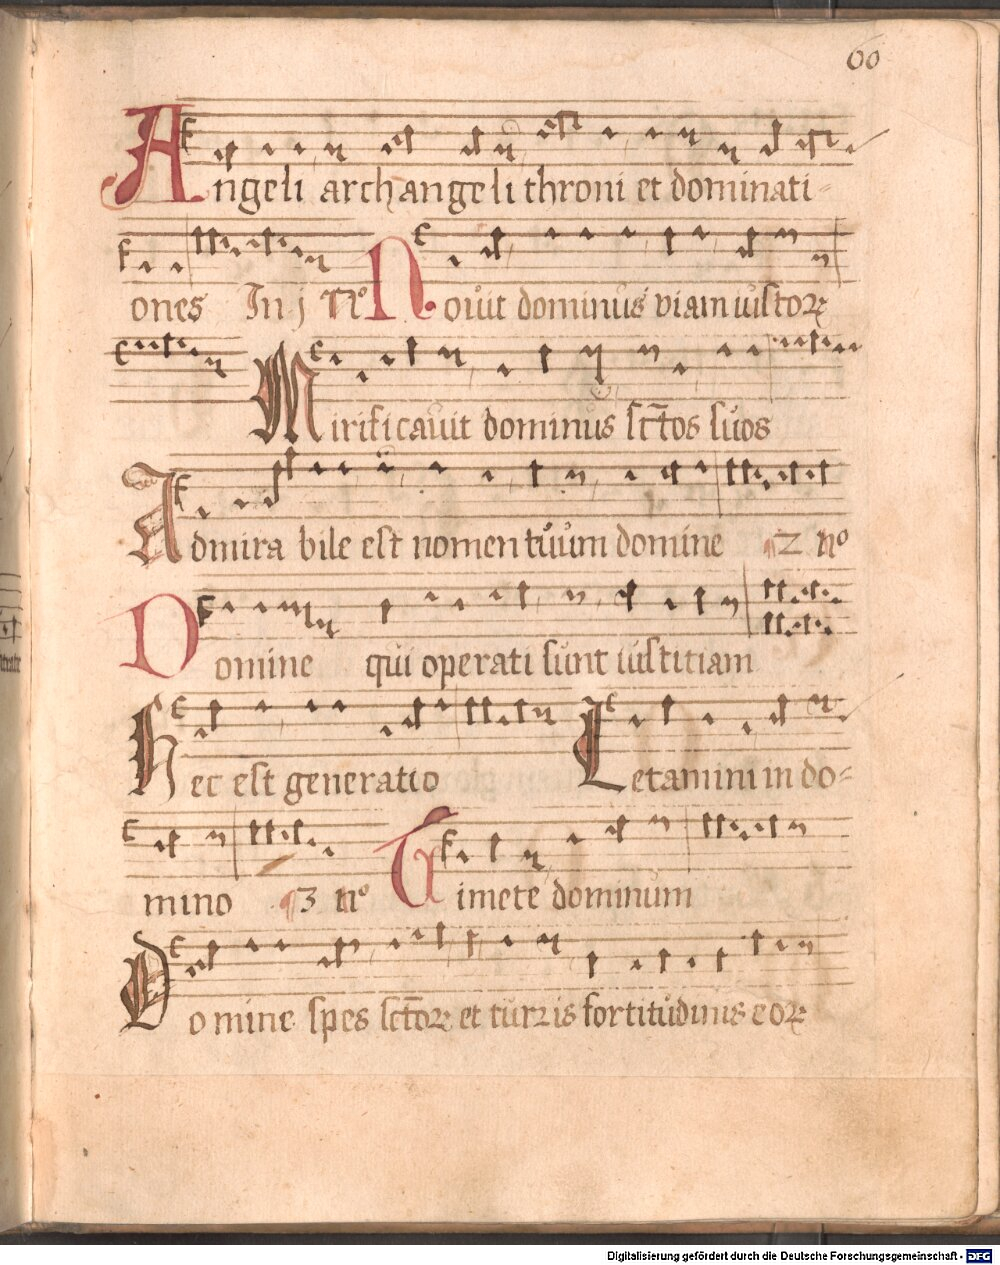 60
Angeli archangeli throni et dominati-
ones In j n° Nouit dominus viam iustoꝝ
Mirificauit dominus sc̄tos suos
Admirabile est nomen tuum domine 2 n°
Domine qui operati sunt iustitiam
Hec est generatio Letamini in do-
mino 3 n° Timete dominum
Domine spes sc̄toꝝ et turris fortitudinis eoꝝ
Digitalisierung gefördert durch die Deutsche Forschungsgemeinschaft - DFG